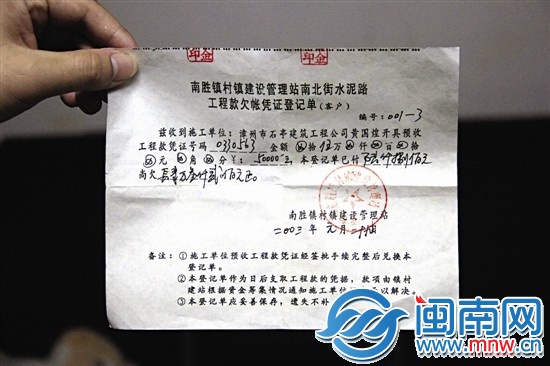 南胜镇村镇建设管理站南北街水泥路
工程款欠帐凭证登记单(客户)
编号:001-3
兹收到施工单位:漳州市石亭建筑工程公司黄国煌开具预收
工程款凭证号码 0330563 金额 拾 伍万 仟 百 拾
元 角 分 ¥:50000元 本登记单已付
尚欠
南胜镇村镇建设管理站
二00三年元月
备注:①施工单位预收工程款凭证经签批手续完整后兑换本
登记单。
②本登记单作为日后支取工程款的凭据,款项由镇村
建站根据资金筹集情况通知施工单位予以解决。
③本登记单应妥善保存,遗失不补
闽南网
www.mnw.cn